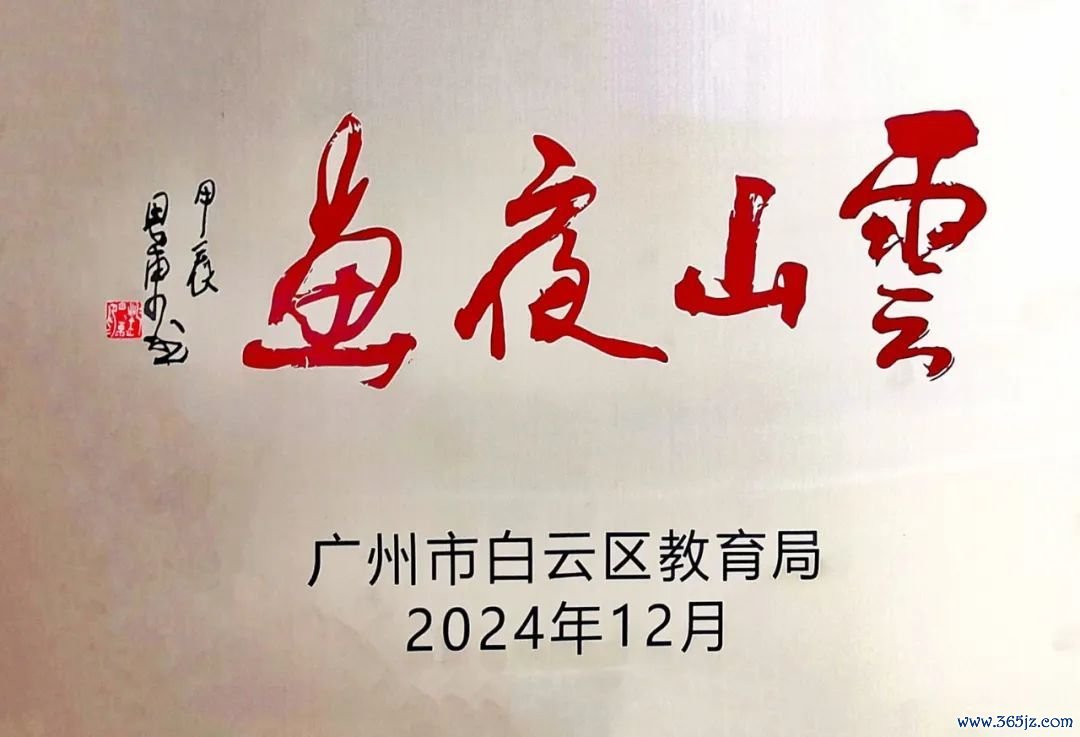 雲山夜畫
甲辰
广州市白云区教育局
2024年12月
www.365jz.com